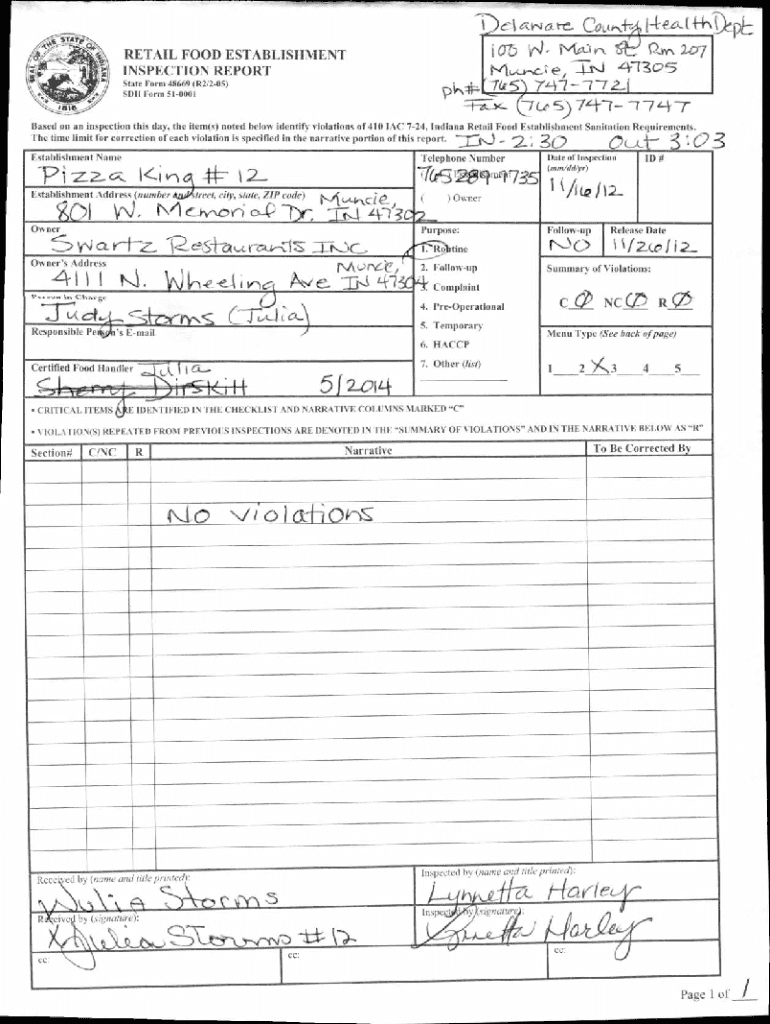 Delaware County Health Dept
100 W. Main St Rm 207
Muncie, IN 47305
ph# (765) 747-7721
Fax (765) 747-7747
SEAL OF THE STATE OF INDIANA
1816
RETAIL FOOD ESTABLISHMENT
INSPECTION REPORT
State Form 48669 (R2/2-05)
SDH Form 51-0001
Based on an inspection this day, the item(s) noted below identify violations of 410 IAC 7-24, Indiana Retail Food Establishment Sanitation Requirements.
The time limit for correction of each violation is specified in the narrative portion of this report. IN - 2:30 Out 3:03
Establishment Name
Pizza King # 12
Telephone Number
765 289 7735
Date of Inspection
(mm/dd/yr)
11/16/12
ID #
Establishment Address (number and street, city, state, ZIP code)
801 W. Memorial Dr. Muncie, IN 47302
( ) Owner
Owner
Swartz Restaurants INC
Purpose:
1. Routine
2. Follow-up
3. Complaint
4. Pre-Operational
5. Temporary
6. HACCP
7. Other (list)
Follow-up
NO
Release Date
11/26/12
Owner's Address
4111 N. Wheeling Ave Muncie, IN 47304
Summary of Violations:
C Ø NC Ø R Ø
Person in Charge
Judy Storms (Julia)
Responsible Person's E-mail
Menu Type (See back of page)
1 2 X 3 4 5
Certified Food Handler
Julia
Sherry Dirskitt 5/2014
• CRITICAL ITEMS ARE IDENTIFIED IN THE CHECKLIST AND NARRATIVE COLUMNS MARKED "C"
• VIOLATION(S) REPEATED FROM PREVIOUS INSPECTIONS ARE DENOTED IN THE "SUMMARY OF VIOLATIONS" AND IN THE NARRATIVE BELOW AS "R"
Section# C/NC R Narrative To Be Corrected By
No violations
Received by (name and title printed):
Julia Storms
Inspected by (name and title printed):
Lynnetta Harley
Received by (signature):
X Julia Storms #12
Inspected by (signature):
Lynnetta Harley
cc:
cc:
cc:
Page 1 of 1